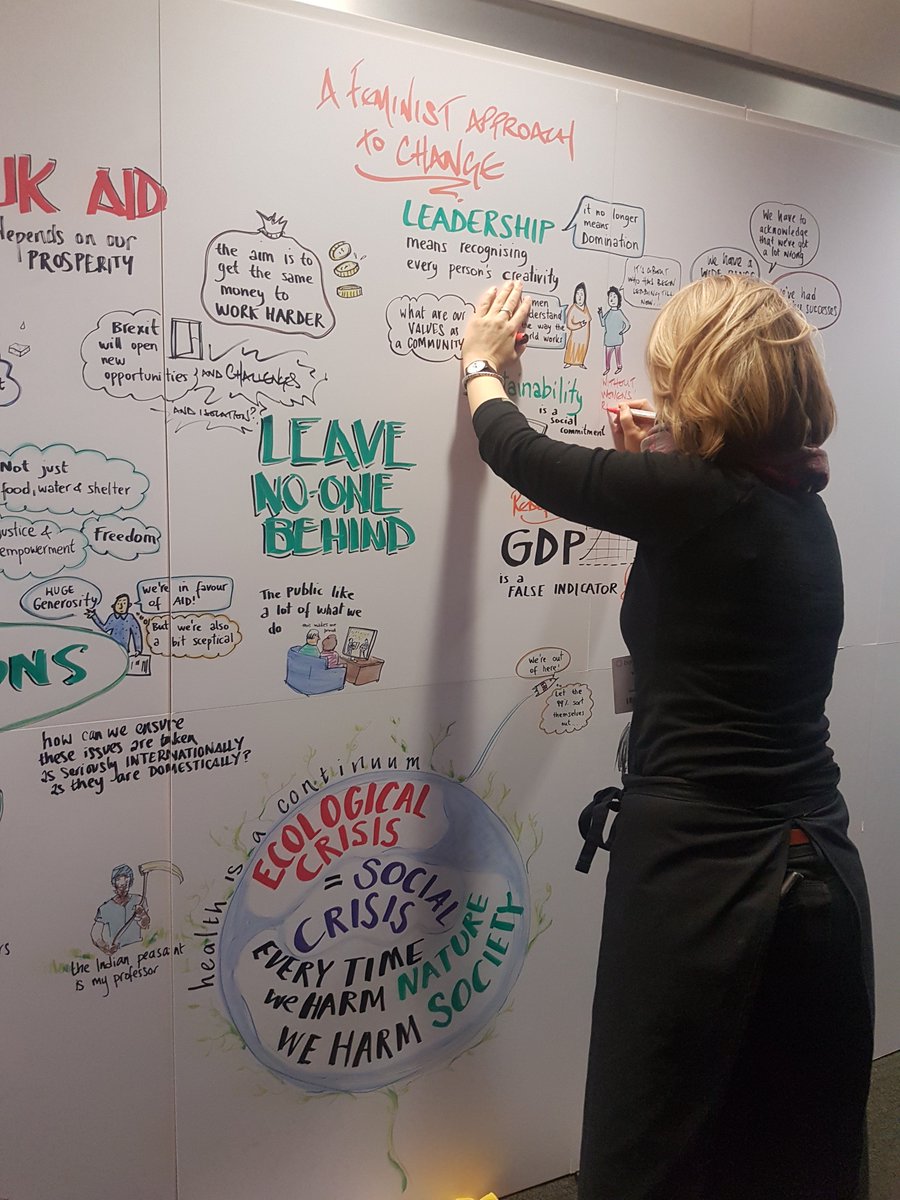 A FEMINIST APPROACH
to CHANGE
UK AID
depends on our
PROSPERITY
the aim is to
get the same
money to
WORK HARDER
LEADERSHIP
means recognising
every person's creativity
it no longer
means
Domination
We have to
acknowledge
that we've got
a lot wrong
we have a
IT'S ABOUT
WHO HAS BEEN
what are our
VALUES as
a COMMUNITY
Brexit
will open
new
opportunities
AND CHALLENGES
AND ISOLATION?
is a
social
commitment
WITHOUT
WOMEN'S
LEAVE
NO-ONE
BEHIND
Not just
food, water & shelter
justice &
empowerment
Freedom
GDP
is a
FALSE INDICATOR
HUGE
Generosity
we're in favour
of AID!
But we're also
a bit sceptical
The Public like
a lot of what we
do
We're out
of here!
Let the
99% sort
themselves
out...
how can we ensure
these issues are taken
as seriously INTERNATIONALLY
as they are DOMESTICALLY?
health is a continuum
ECOLOGICAL
CRISIS
= SOCIAL
CRISIS
EVERY TIME
we HARM NATURE
WE HARM SOCIETY
the Indian peasant
is my professor